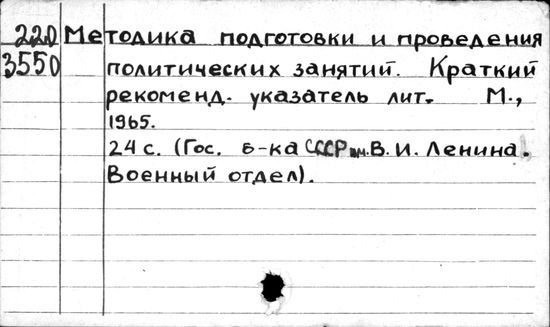 220 Методика подготовки и проведения
3550 политических занятий. Краткий
рекоменд. указатель лит. М.,
1965.
24 с. (Гос. б-ка СССР им. В. И. Ленина.
Военный отдел).